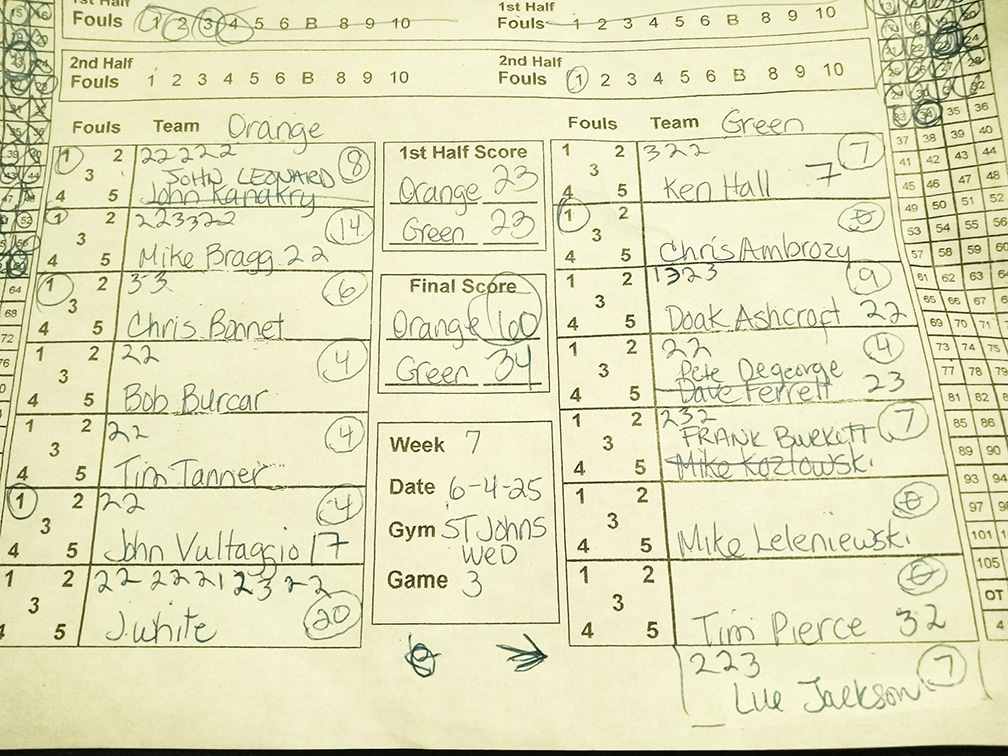 1st Half
Fouls 1 2 3 4 5 6 B 8 9 10
1st Half
Fouls 1 2 3 4 5 6 B 8 9 10
2nd Half
Fouls 1 2 3 4 5 6 B 8 9 10
2nd Half
Fouls 1 2 3 4 5 6 B 8 9 10
Fouls Team Orange
1 2 3 4 5
22222
JOHN LEONARD 8
John Kanakry
1 2 3 4 5
223322 14
Mike Bragg 22
1 2 3 4 5
33 6
Chris Bonnet
1 2 3 4 5
22 4
Bob Burcar
1 2 3 4 5
22 4
Tim Tanner
1 2 3 4 5
22 4
John Vultaggio 17
1 2 3 4 5
22 2221 23 22
J. White 20
1st Half Score
Orange 23
Green 23
Final Score
Orange 60
Green 34
Week 7
Date 6-4-25
Gym ST JOHNS
WED
Game 3
Fouls Team Green
1 2 3 4 5
322 7
Ken Hall 7
1 2 3 4 5
0
Chris Ambrozy
1 2 3 4 5
1323 9
Doak Ashcroft 22
1 2 3 4 5
22 4
Pete Degeorge
Dave Ferrell 23
1 2 3 4 5
232 7
FRANK BURKETT
Mike Kozlowski
1 2 3 4 5
0
Mike Leleniewski
1 2 3 4 5
0
Tim Pierce 32
223 7
Lue Jackson
35 36
37 38 39 40
41 42 43 44
45 46 47 48
49 50 51 52
53 54 55 56
57 58 59 60
61 62 63
65 66 67
69 70 71
73 74 75
77 78 79
81 82
85 86
89 90
93 94
97
101
105
OT
4
64
68
72
76